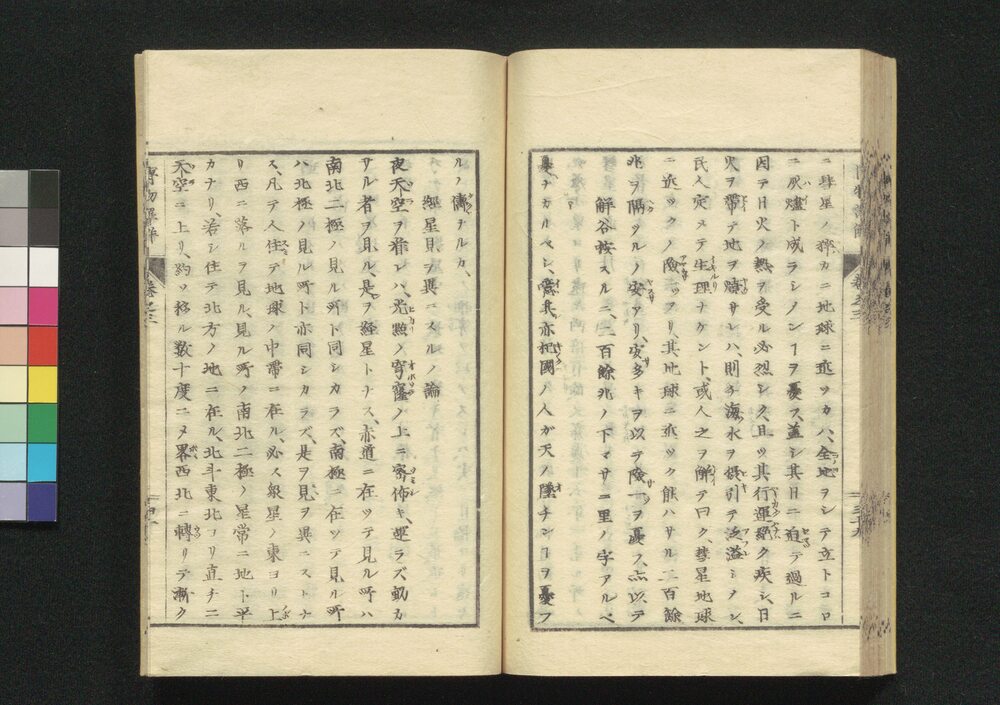 ニ彗星ノ猝カニ地球ニ近ツカハ、全地ヲシテ立トコロ
ニ灰燼ト成ラシメンヿヲ憂ス、蓋シ其日ニ迫テ過ルニ
因テ日火ノ熱ヲ受ル必烈シク、且ツ其行運絶ク疾シ、日
火ヲ帯テ地ヲ燒サレハ、則チ海水ヲ摂引テ泛溢シメン、
民人定メテ生理ナケント、或人之ヲ解テ曰ク、彗星地球
ニ近ツクノ險ヲ、其地球ニ近ツク能ハサル二百餘
兆ヲ隔ツルノ安アリ、安多キヲ以テ險一ヲ憂フ、
解谷按スルニ二百餘兆ノ下マサニ里ノ字アルベシ
憂ナカルベシ、亦杞國ノ人ガ天ノ墜チンヿヲ憂フ
博物新解 巻之三 三十九
ルノ儔ナルカ、
經星見ヲ異ニスルノ論
夜天空ヲ瞻レハ、光點ノ穹窿ノ上ニ密佈キ、運ラズ動カ
サル者ヲ見ル、是ヲ經星トナス、赤道ニ在ツテ見ル所ハ
南北二極ノ見ル所ト同シカラズ、南極ニ在ツテ見ル所
ハ北極ノ見ル所ト亦同シカラズ、是ヲ見ヲ異ニストナ
ス、凡テ人住テ地球ノ中帯ニ在ル、必ス衆星ノ東ヨリ上
リ西ニ落ルヲ見ル、見ル所ノ南北二極ノ星常ニ地ト平
カナリ、若シ住テ北方ノ地ニ在ル、北斗東北ヨリ直チニ
天空ニ上リ、約ソ移ル数十度ニメ畧西北ニ轉リテ漸ク
巻之三 四十